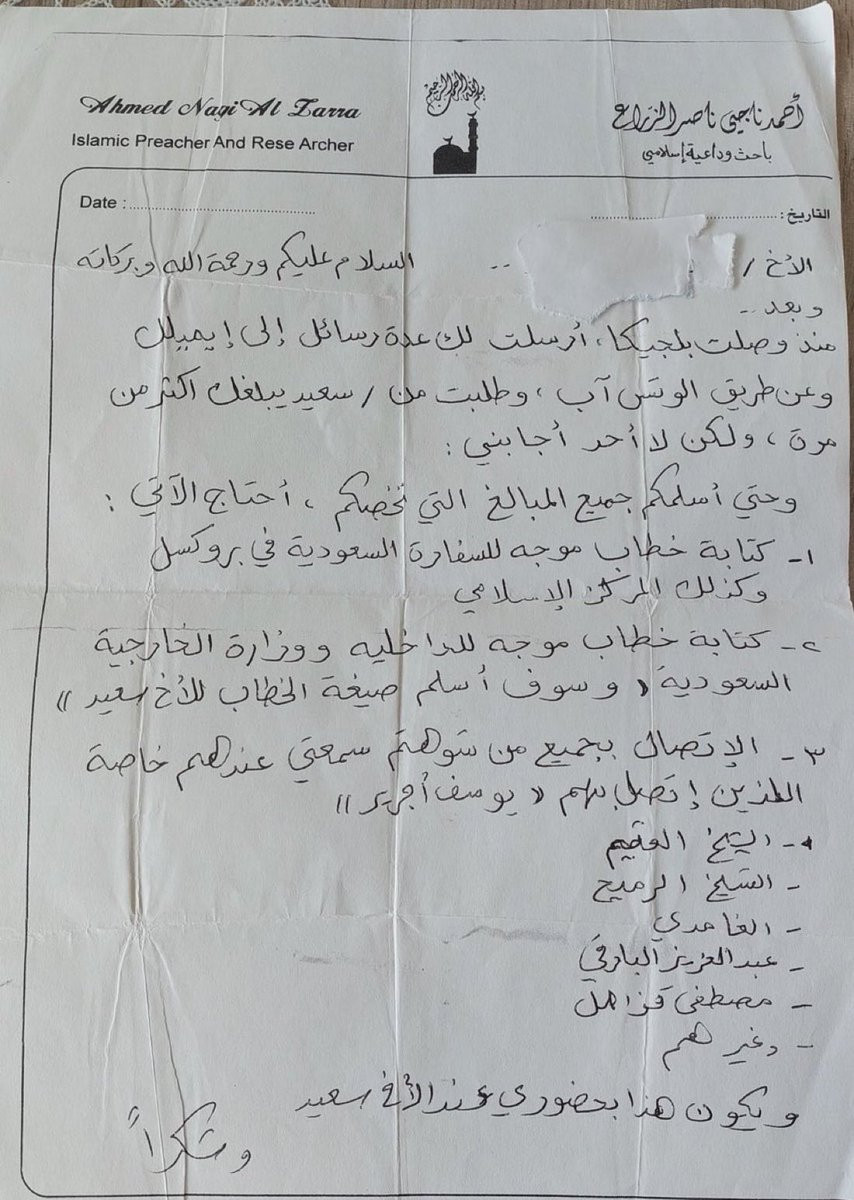 Ahmed Nagi Al Zarra
Islamic Preacher And Rese Archer
بسم الله الرحمن الرحيم
أحمد ناجي ناصر الزراع
باحث وداعية إسلامي
Date :
التاريخ :
الأخ / .. السلام عليكم ورحمة الله وبركاته
وبعد ..
منذ وصلت بلجيكا، أرسلت لك عدة رسائل إلى إيميلك
وعن طريق الوتس آب، وطلبت من / سعيد يبلغك اكثر من
مرة، ولكن لا أحد أجابني :
وحتى أسلمكم جميع المبالغ التي تخصكم، أحتاج الآتي :
١- كتابة خطاب موجه للسفارة السعودية في بروكسل
وكذلك المركز الإسلامي
٢- كتابة خطاب موجه للداخليه ووزارة الخارجية
السعودية « وسوف أسلم صيغة الخطاب للأخ سعيد »
٣- الإتصال بجميع من شوهتم سمعتي عندهم خاصة
الذين إتصل بهم « يوسف أجرير »
- الشيخ
- الشيخ الرميح
- الغامدي
- عبدالعزيز البارقي
- مصطفى
- وغيرهم
ويكون هذا بحضوري عند الأخ سعيد
وشكراً